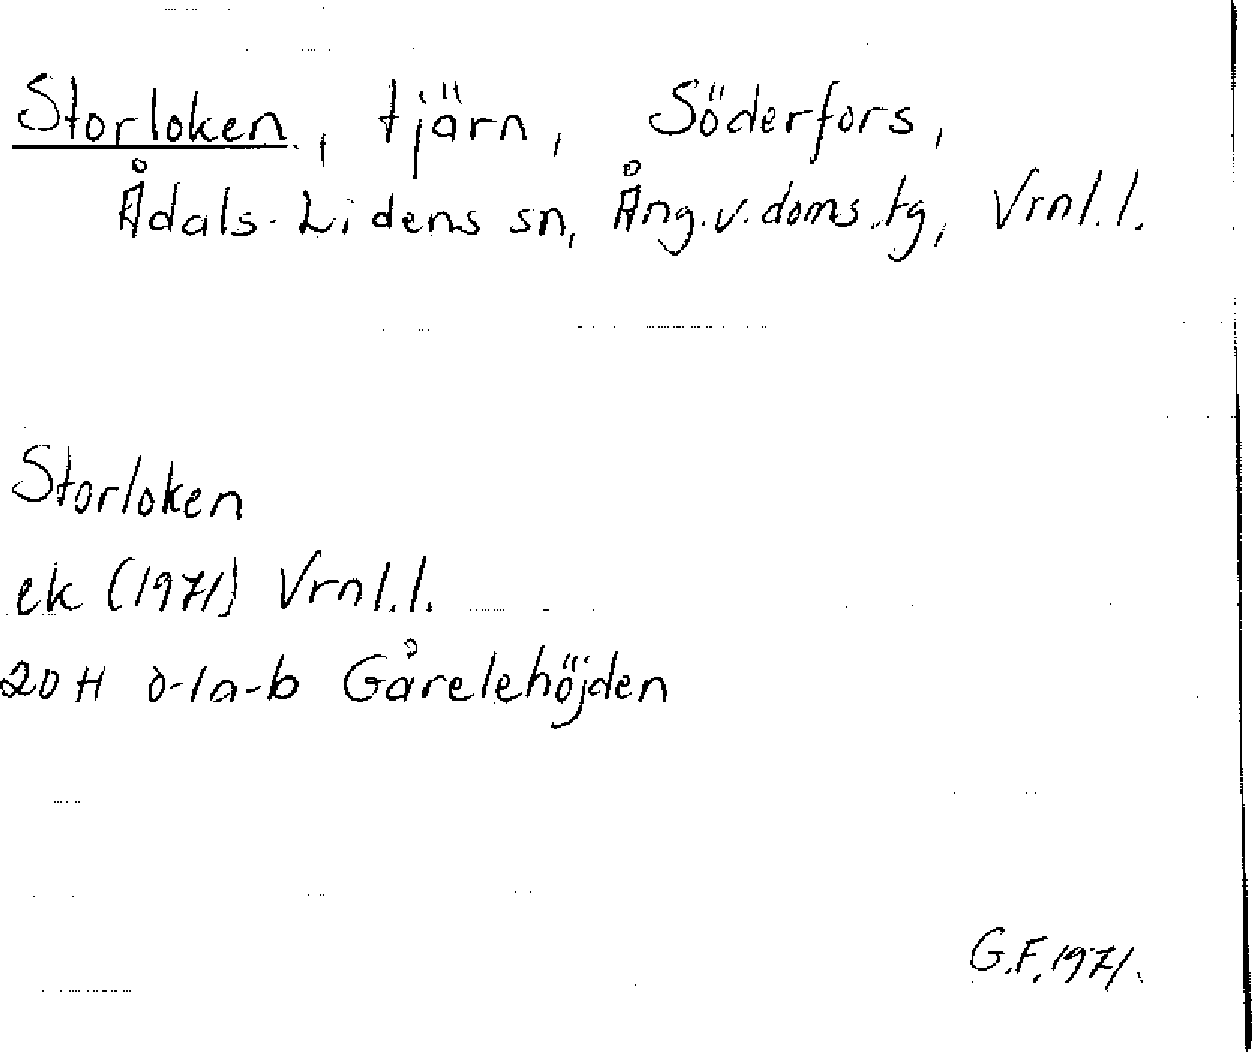 Storloken, tjärn, Söderfors,
Ådals-Lidens sn, Ång.v.doms.tg, Vrnl.l.
Storloken
ek (1971) Vrnl.l.
20H 0-1a-b Gårelehöjden
G.F.1971.